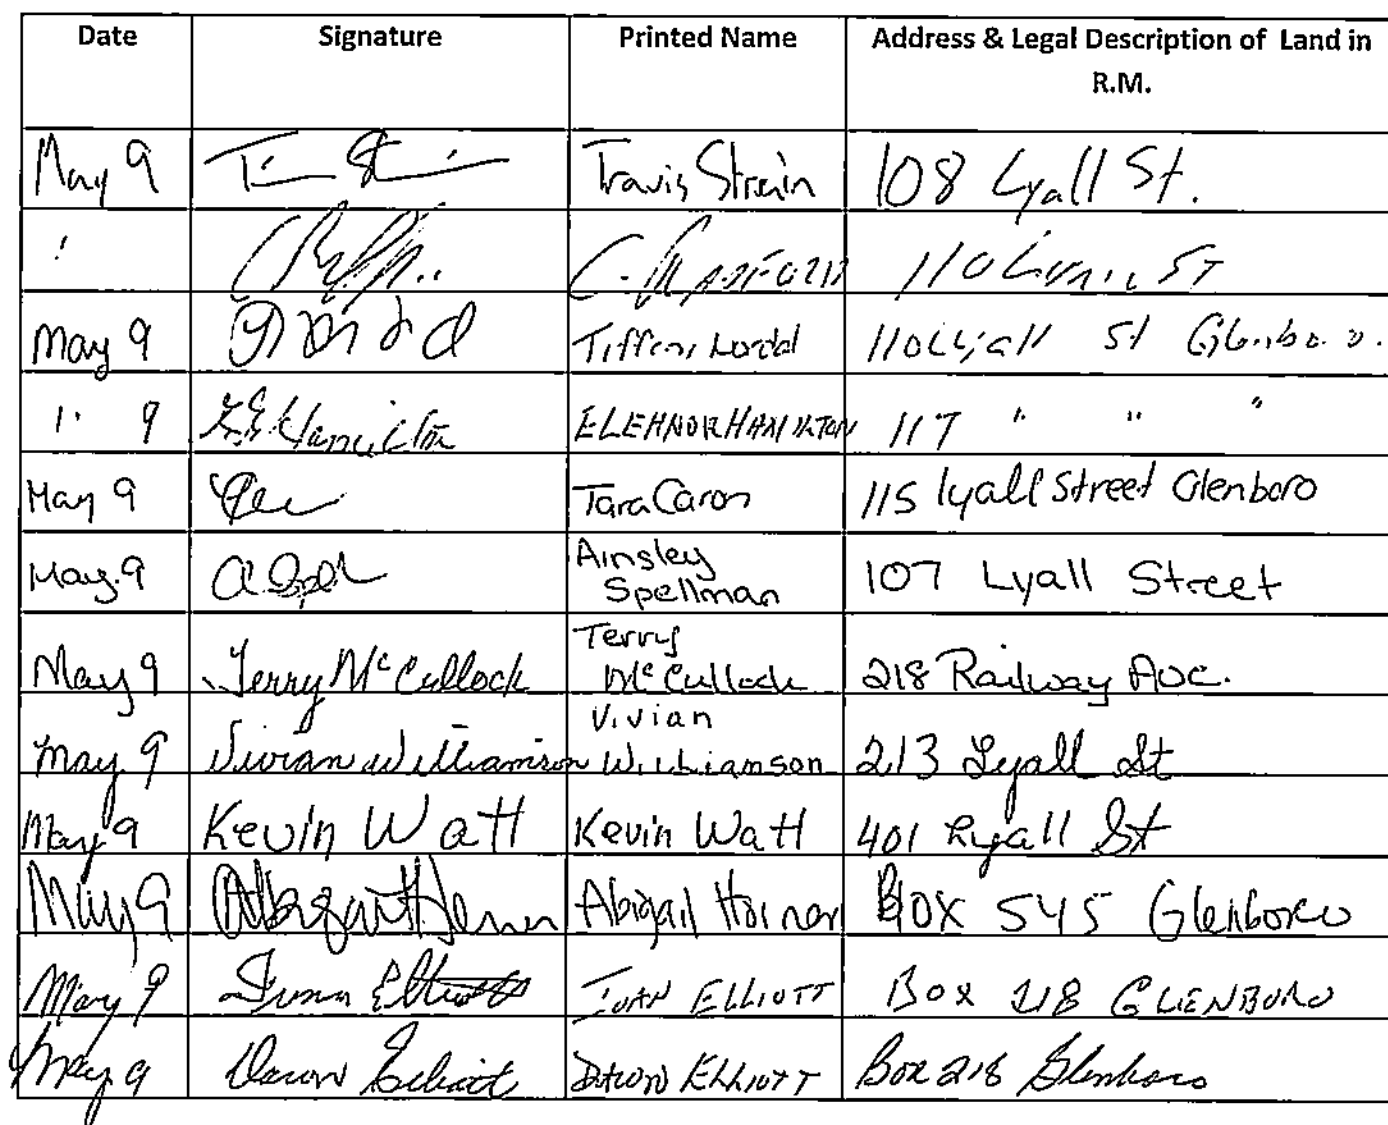 Date Signature Printed Name Address & Legal Description of Land in
R.M.
May 9 Travis Strain 108 Lyall St.
" C. 110 St
May 9 Tiffeni Nordal 110 Lyall St Glenboro.
" 9 E.E. Hamilton ELEHNOR HAMILTON 117 " " "
May 9 Tara Caron 115 lyall Street Glenboro
May.9 Ainsley Spellman 107 Lyall Street
May 9 Terry McCullock Terry McCullock 218 Railway Ave.
May 9 Vivian Williamson Vivian Williamson 213 Lyall St
May 9 Kevin Watt Kevin Watt 401 Lyall St
May 9 Abigail Horner Abigail Hornor Box 545 Glenboro
May 9 Elliott IVAN ELLIOTT Box 218 GLENBORO
May 9 Dawn Elliott DAWN ELLIOTT Box 218 Glenboro